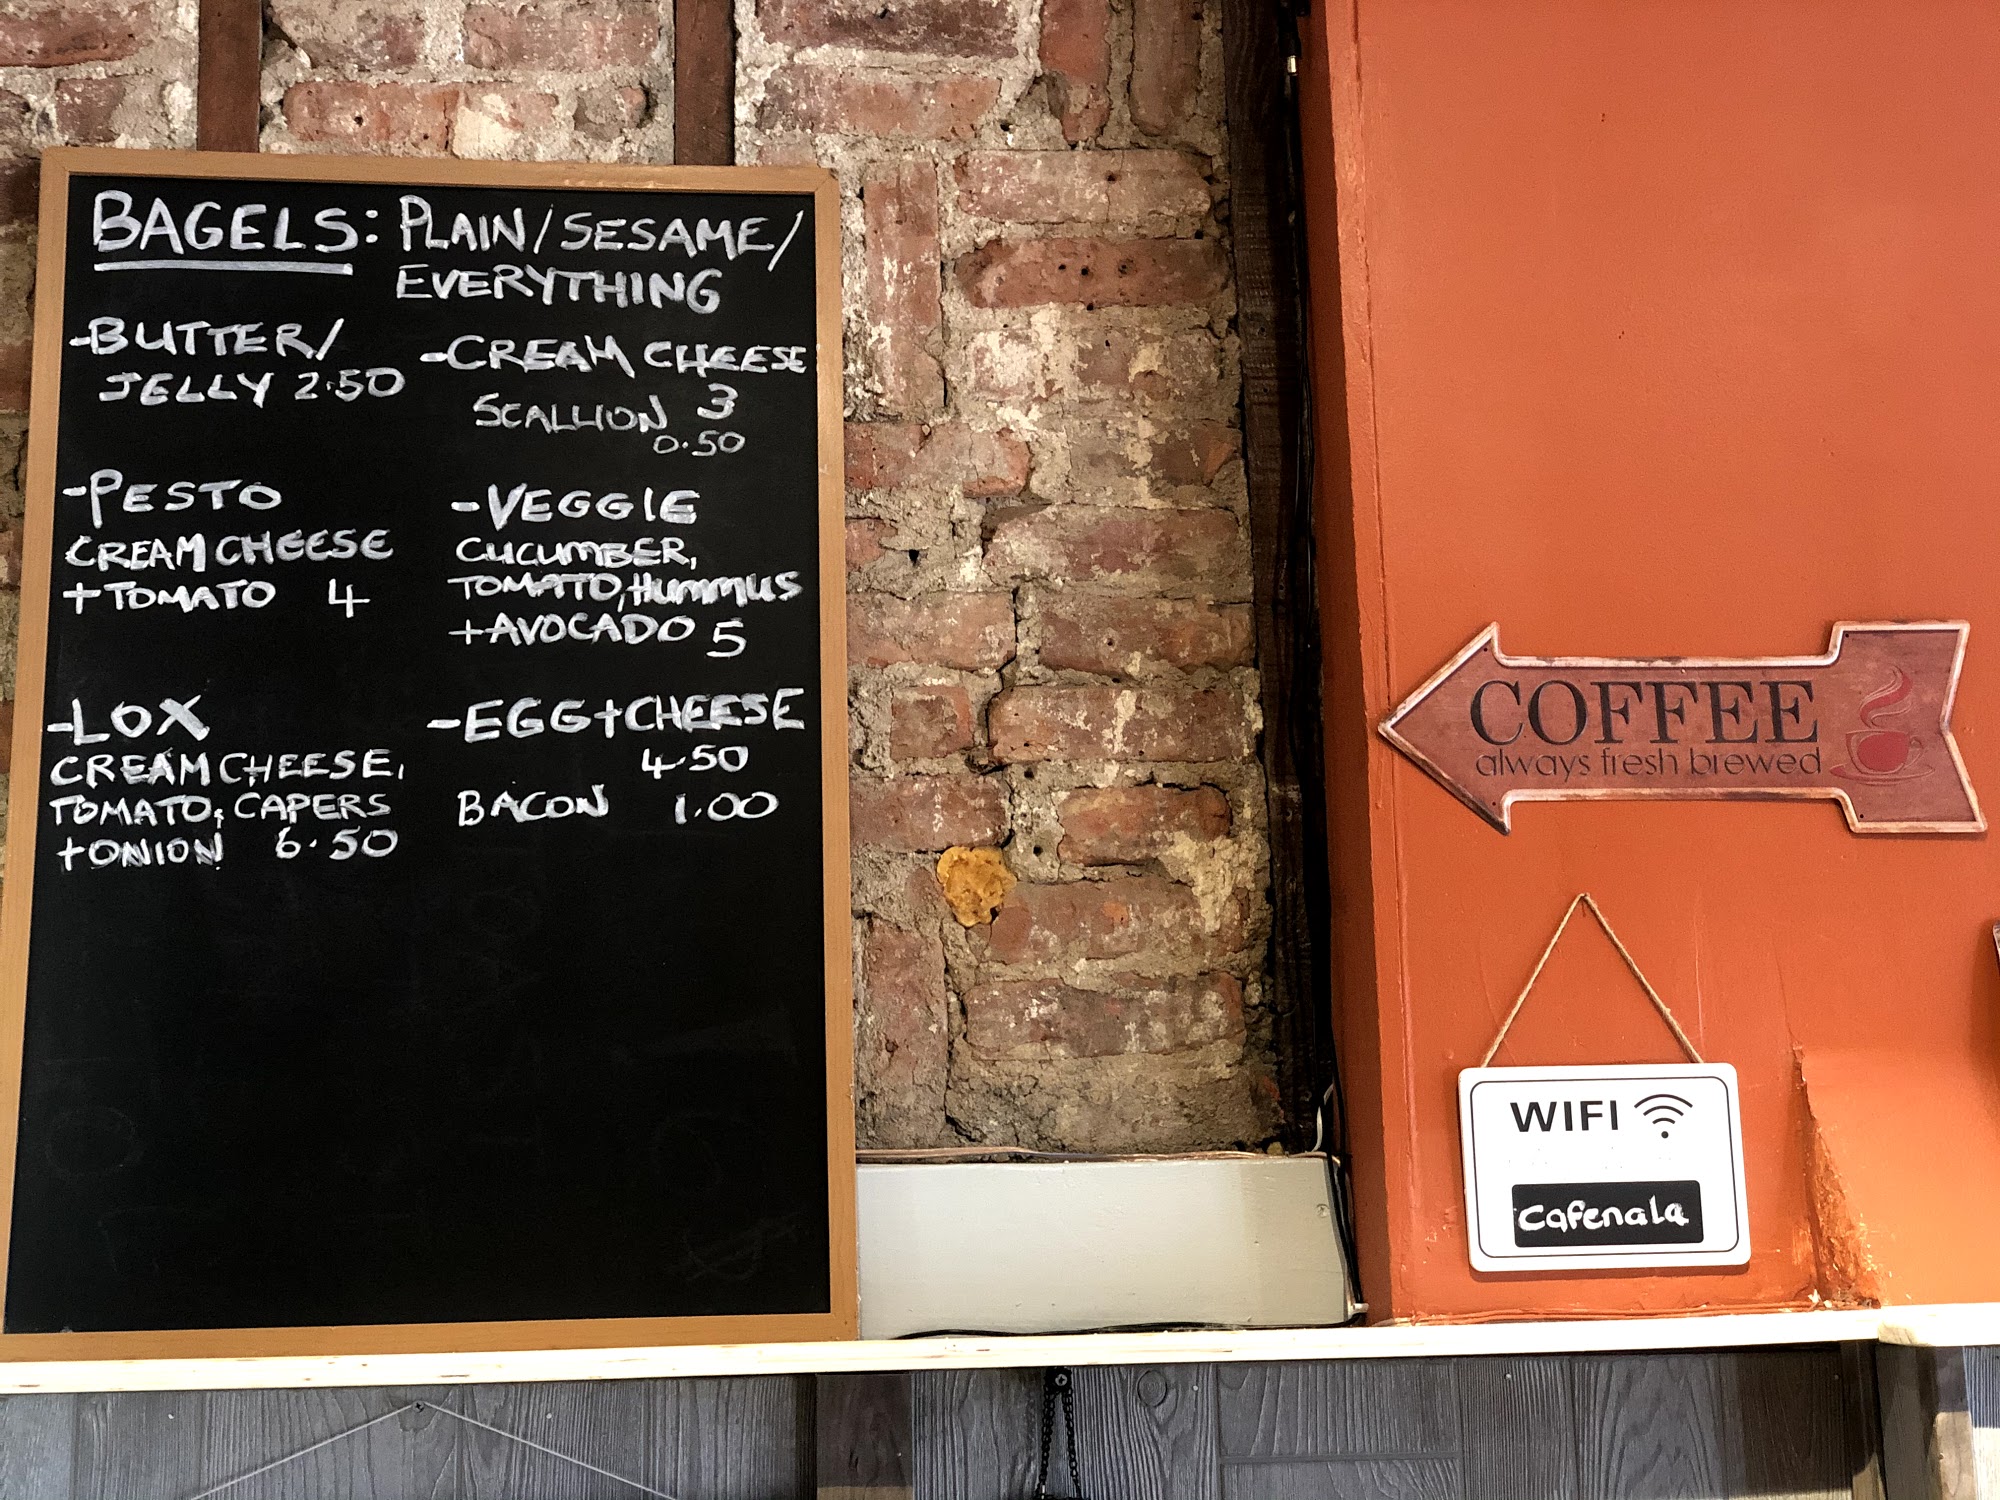 BAGELS: PLAIN/SESAME/
EVERYTHING
-BUTTER/
JELLY 2.50
-CREAM CHEESE
3
SCALLION
0.50
-PESTO
CREAM CHEESE
+TOMATO 4
-VEGGIE
CUCUMBER,
TOMATO, HUMMUS
+AVOCADO 5
-LOX
CREAM CHEESE,
TOMATO, CAPERS
+ONION 6.50
-EGG+CHEESE
4.50
BACON 1.00
COFFEE
always fresh brewed
WIFI
Cafenala